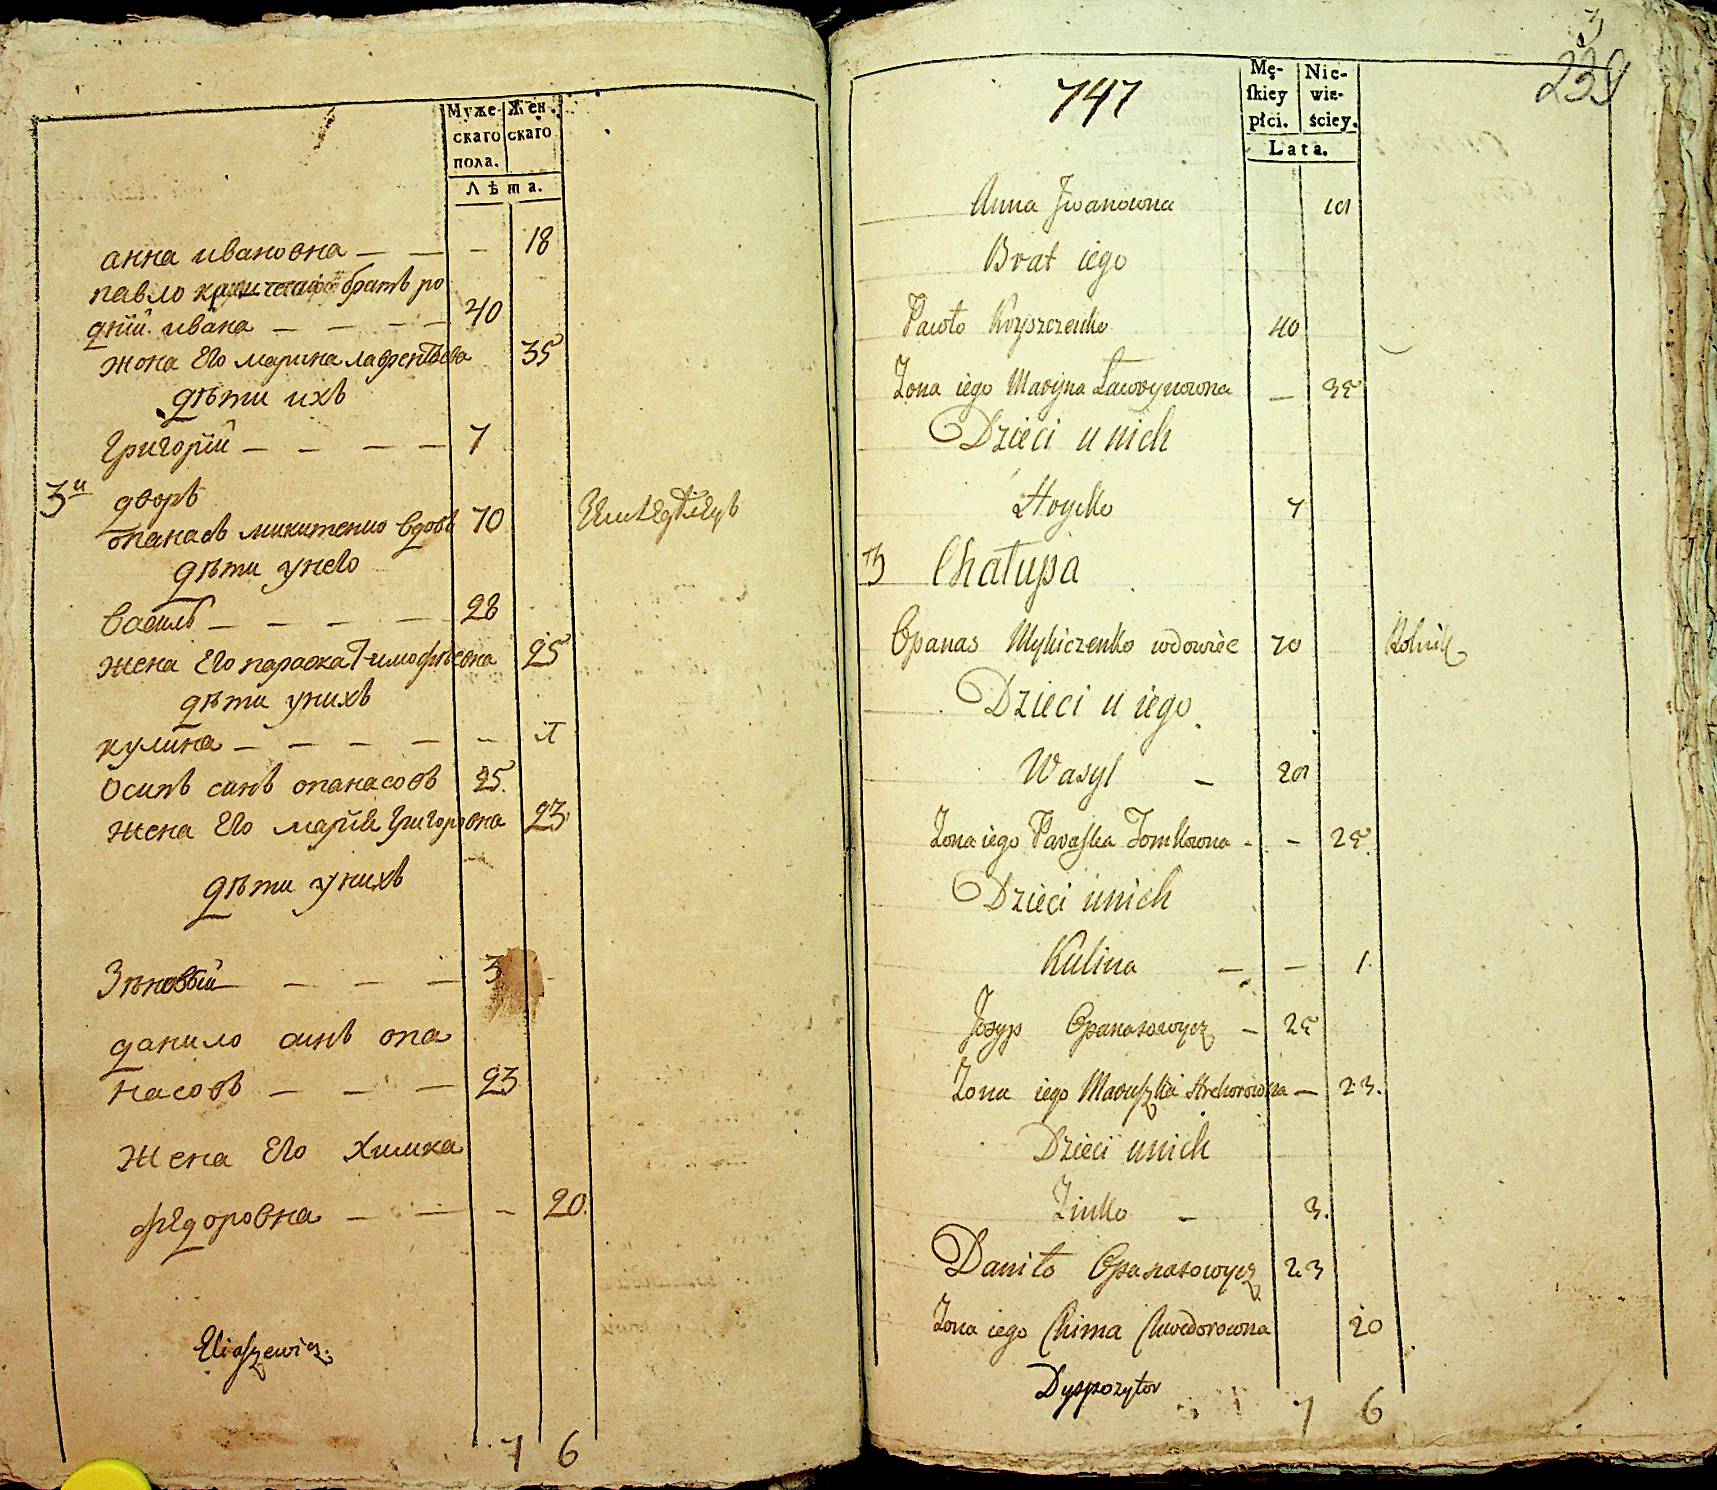 Муже-
скаго
пола.
Жен-
скаго
Лѣта.
анна ивановна — — — 18
павло братъ ро
дній ивана — — — — 40
жона Его марина лаврентѣева 35
дѣти ихъ
григорій — — — — 7
3й дворъ
опанасъ микитенко вдовъ 70
дѣти унего
василь — — — — 28
жена Его параска Тимофѣевна 25
дѣти унихъ
кулина — — — — —
Осипъ синъ опанасовъ 25.
жена Его марія григоровна 23
дѣти унихъ
Зѣновій — — — — 3
данило синъ опа
насовъ — — — 23
жена Его Химка
федоровна — — — 20.
Eliaszewicz.
7 6
3
239
747
Mę-
skiey
płci.
Nie-
wie-
ściey.
Lata.
Anna Jwanowna 18
Brat iego
Pawło Kryszczenko 40
Zona iego Maryna Ławrynowna — 35
Dzieci u nich
Hrycko 7
3 Chałupa
Opanas Mykiczenko wdowiec 70 Rolnik
Dzieci u iego
Wasyl — 28
Zona iego Paraska Tomkowna - — 25.
Dzieci unich
Kulina — — 1.
Josyp Opanasowycz — 25
Zona iego Maruszka Hrehorowna — 23.
Dzieci unich
Zinko — 3.
Daniło Opanasowycz 23
Zona iego Chima Chwedorowna 20
Dyspozytor
7 6